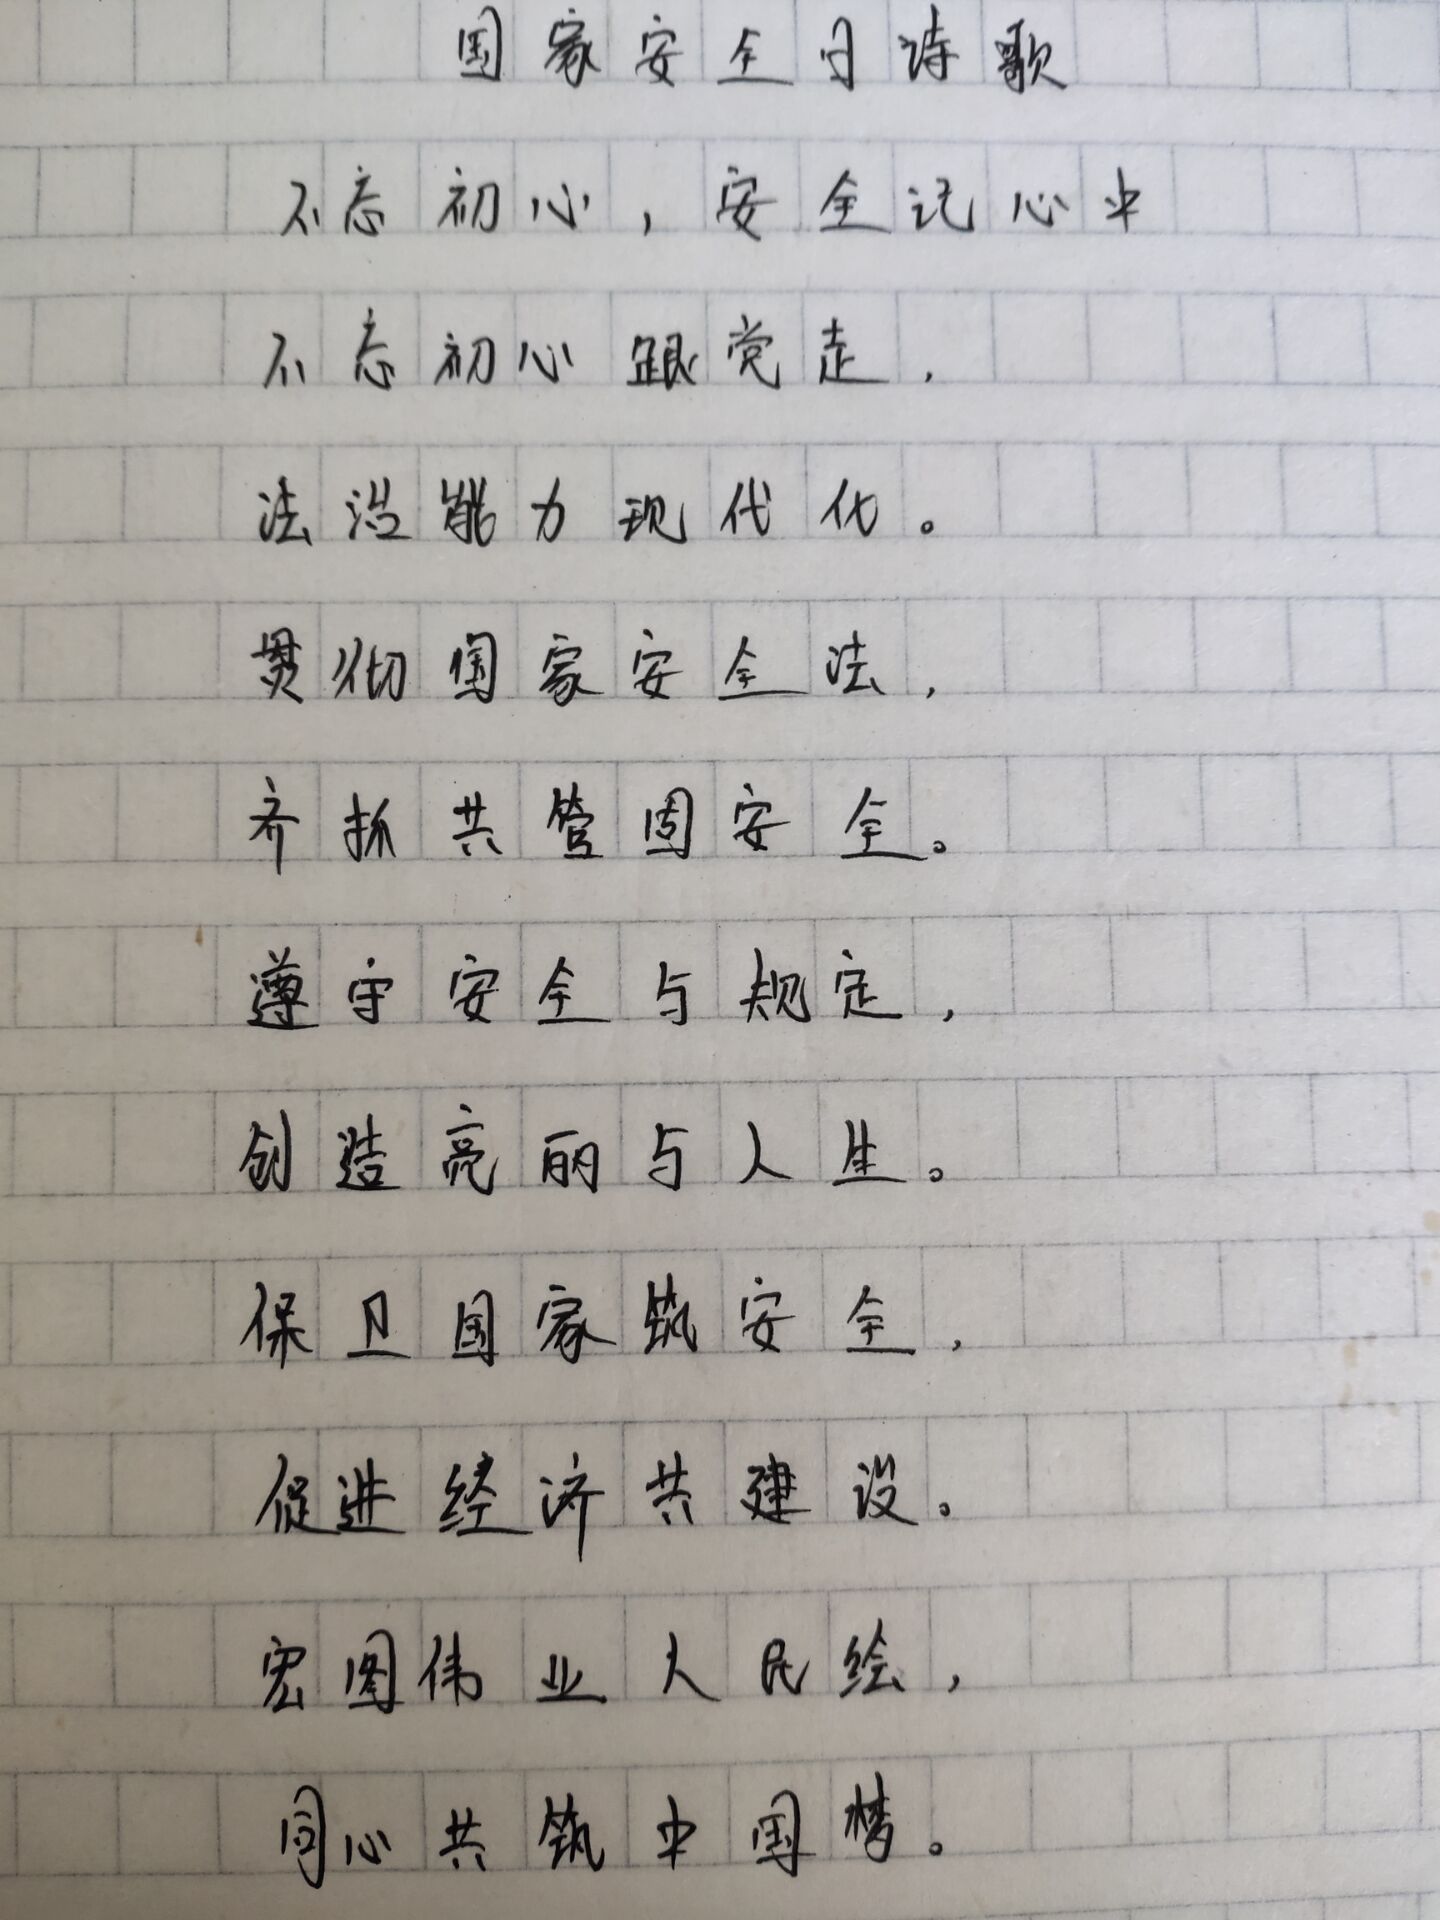 国家安全日诗歌
不忘初心，安全记心中
不忘初心跟党走，
法治能力现代化。
贯彻国家安全法，
齐抓共管固安全。
遵守安全与规定，
创造亮丽与人生。
保卫国家筑安全，
促进经济共建设。
宏图伟业人民绘，
同心共筑中国梦。